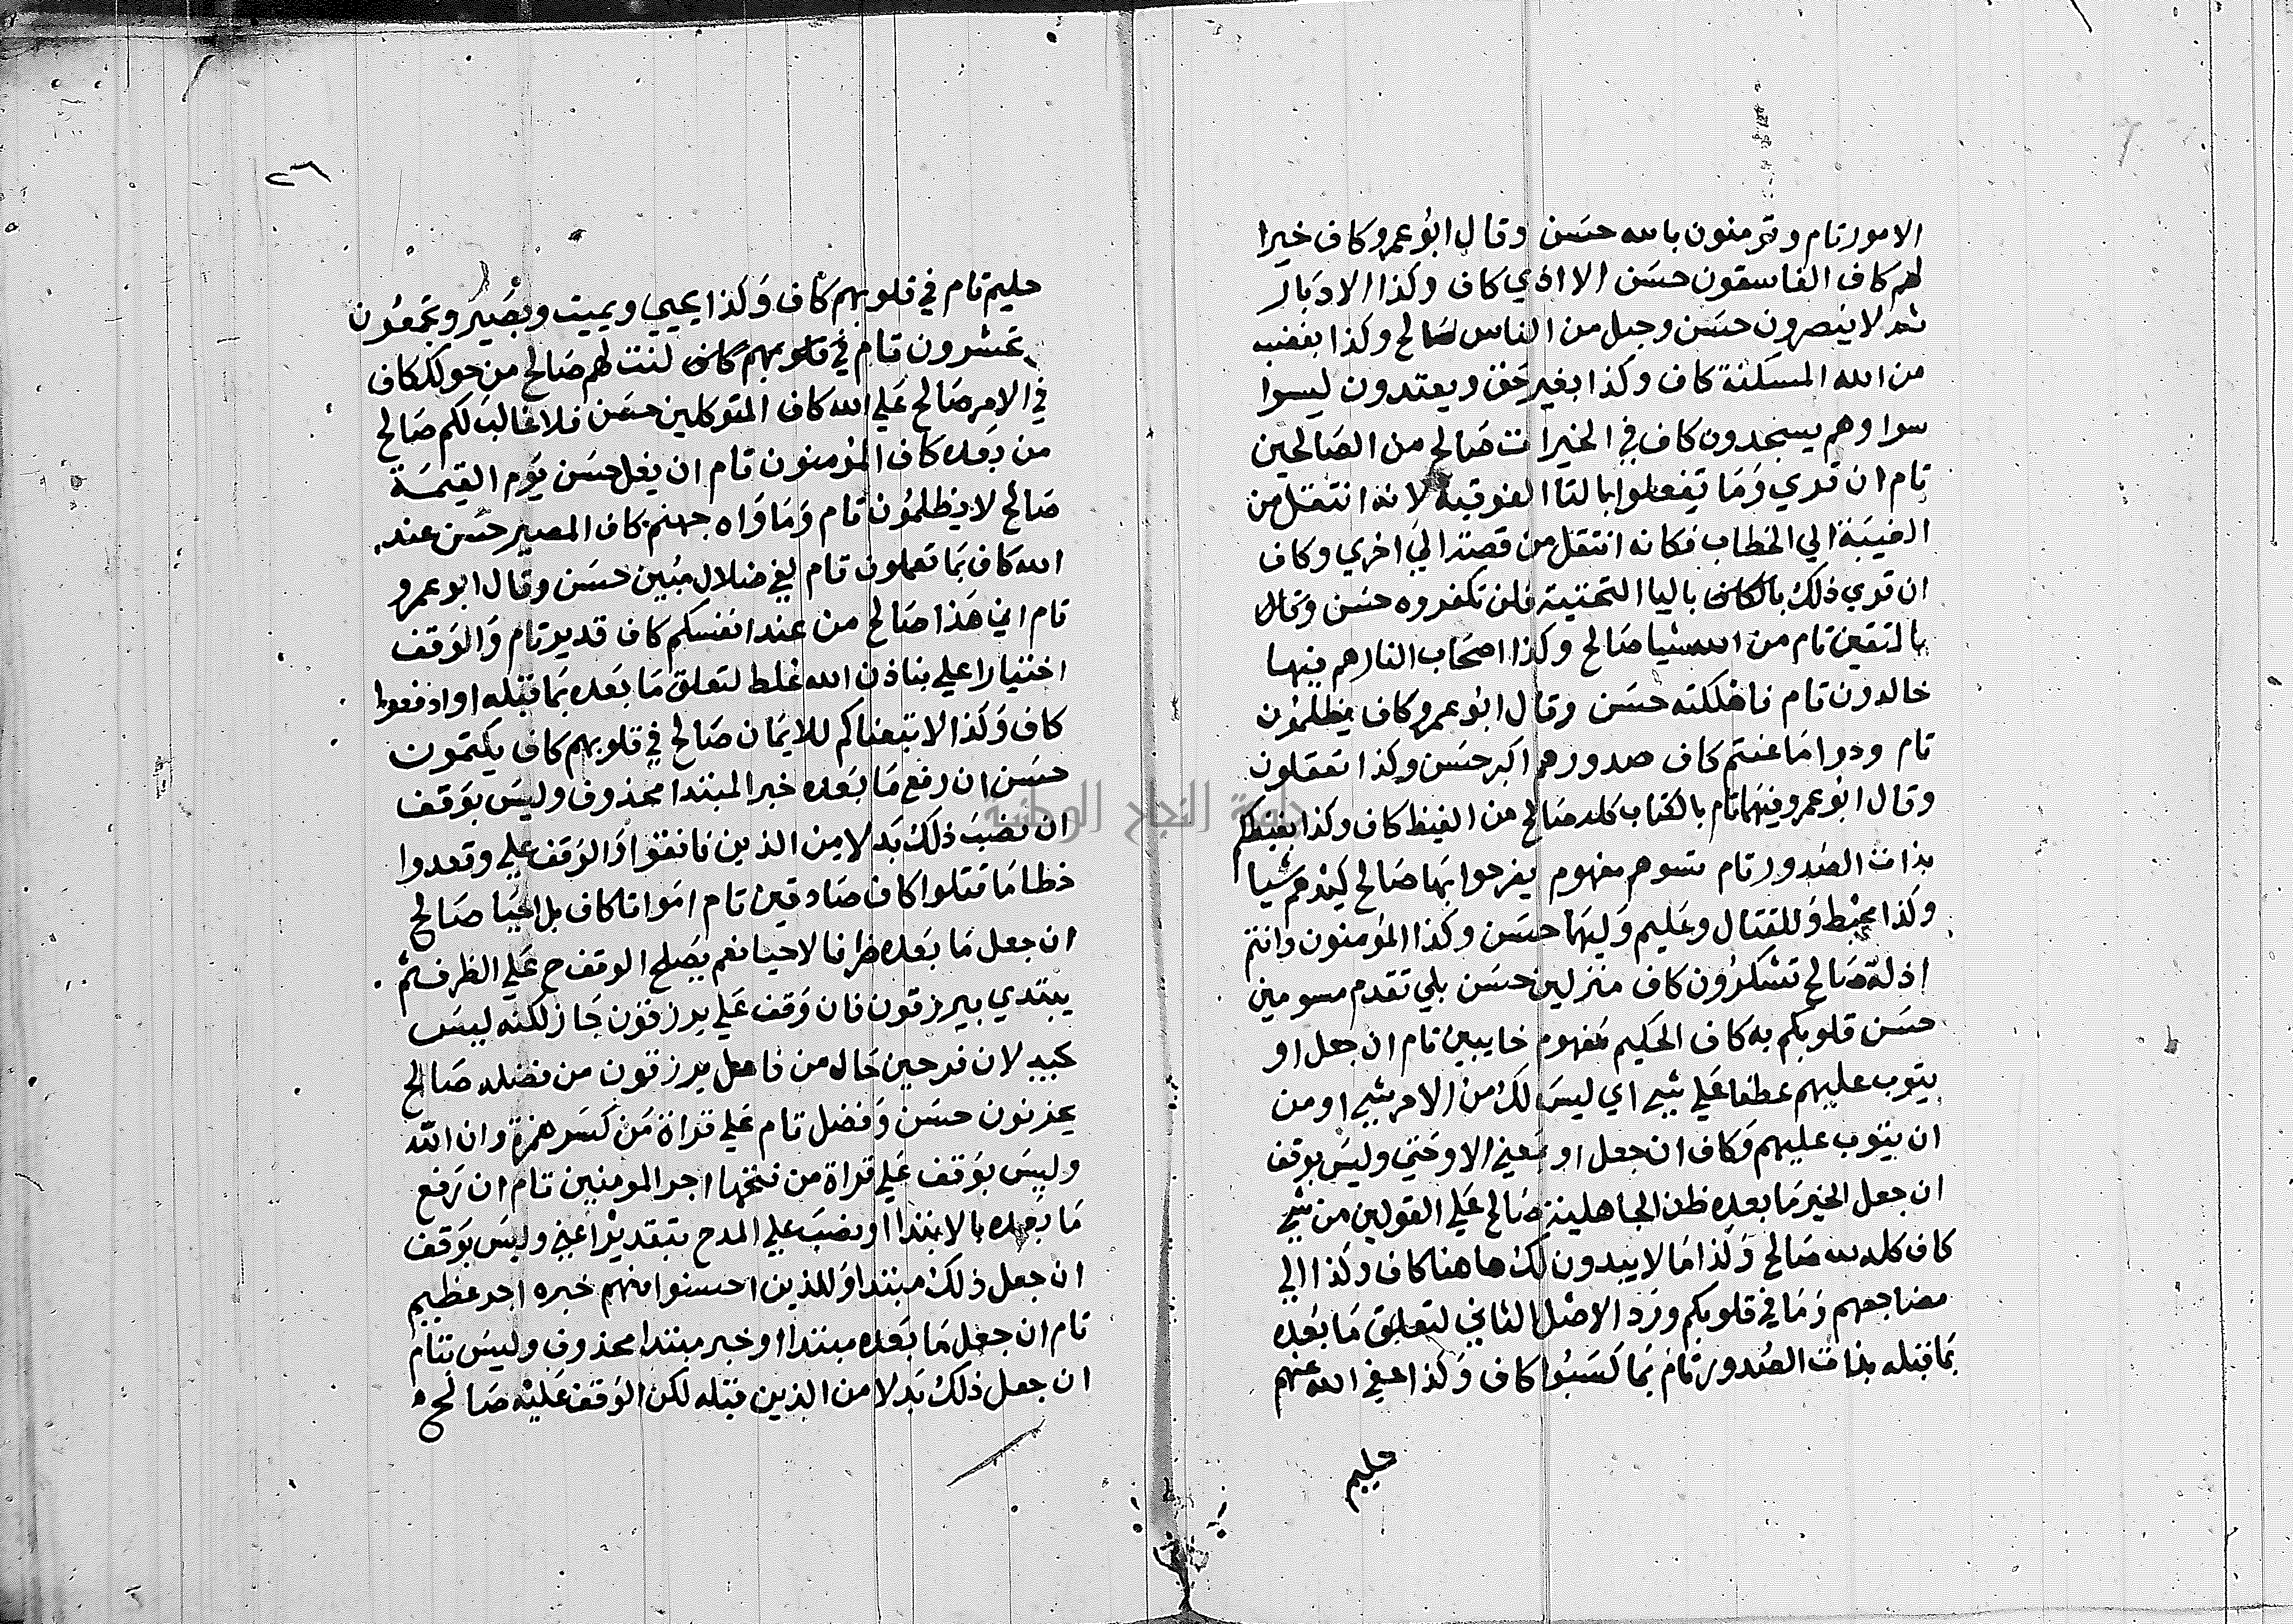 الامور تام وتومنون بالله حسن وقال ابو عمرو كاف خيرا
لهم كاف الفاسقون حسن الا اذي كاف وكذا الادبار
ثم لا ينصرون حسن وحبل من الناس صالح وكذا بغضب
من الله المسكنة كاف وكذا بغير حق ويعتدون ليسوا
سوا وهم يسجدون كاف في الخيرات صالح من الصالحين
تام ان قري وما تفعلوا بالتا الفوقية لانه انتقل من
الغيبة الي الخطاب فكانه انتقل من قصة الي اخري وكاف
ان قري ذلك بالكاف باليا التحتية فلن تكفروه حسن وقال
بالمتقين تام من الله شيا صالح وكذا اصحاب النار هم فيها
خالدون تام فاهلكته حسن وقال ابو عمرو كاف يظلمون
تام ودوا ما عنتم كاف صدورهم اكبر حسن وكذا تعقلون
وقال ابو عمرو فيهما تام بالكتاب كله صالح من الغيظ كاف وكذا بغيظكم
بذات الصدور تام تسوهم مفهوم يفرحوا بها صالح كيدهم شيا
وكذا محيط وللقتال وعليم وليهما حسن وكذا المؤمنون وانتم
اذلة صالح تشكرون كاف منزلين حسن بلي تقدم مسومين
حسن قلوبكم به كاف الحكيم مفهوم خايبين تام ان جعل او
يتوب عليهم عطفا علي شي اي ليس لك من الامر شي او من
ان يتوب عليهم وكاف ان جعل او بمعني الا وحتي وليس بوقف
ان جعل الخير ما بعده ظن الجاهلية صالح علي القولين من شي
كاف كله لله صالح وكذا ما لا يبدون لك هاهنا كاف وكذا الي
مضاجعهم وما في قلوبكم ورد الاصل الثاني لتعلق ما بعده
بما قبله بذات الصدور تام بما كسبوا كاف وكذا عفي الله عنهم
حليم
٢٦
حليم تام في قلوبهم كاف وكذا يحيي ويميت وبصير ويجمعون
تحشرون تام في قلوبهم كاف لنت لهم صالح من حولك كاف
في الامر صالح علي الله كاف المتوكلين حسن فلا غالب لكم صالح
من بعده كاف المؤمنون تام ان يغل حسن يوم القيمة
صالح لا يظلمون تام وماواه جهنم كاف المصير حسن عند
الله كاف بما تعملون تام لفي ضلال مبين حسن وقال ابو عمرو
تام اني هذا صالح من عند انفسكم كاف قدير تام والوقف
اختيارا علي فباذن الله غلط لتعلق ما بعده بما قبله او ادفعوا
كاف وكذا لا تبعناكم للايمان صالح في قلوبهم كاف يكتمون
حسن ان رفع ما بعده خبر المبتدا محذوف وليس بوقف
ان نصب ذلك بدلا من الذين نافقوا والوقف علي وقعدوا
خطا ما قتلوا كاف صادقين تام امواتا كاف بل احيا صالح
ان جعل ما بعده ظرفا لاحيا نعم يصلح الوقف ح علي الظرف ثم
يبتدي بيرزقون فان وقف علي يرزقون جاز لكنه ليس
بجيد لان فرحين حال من فاعل يرزقون من فضله صالح
يحزنون حسن وفضل تام علي قراة من كسر همزة وان الله
وليس بوقف علي قراة من فتحها اجر المومنين تام ان رفع
ما بعده بالابتدا او نصب علي المدح بتقدير اعني وليس بوقف
ان جعل ذلك مبتدا وللذين احسنوا منهم خبره اجر عظيم
تام ان جعل ما بعده مبتدا او خبر مبتدا محذوف وليس بتام
ان جعل ذلك بدلا من الذين قبله لكن الوقف عليه صالح
جامعة النجاح الوطنية